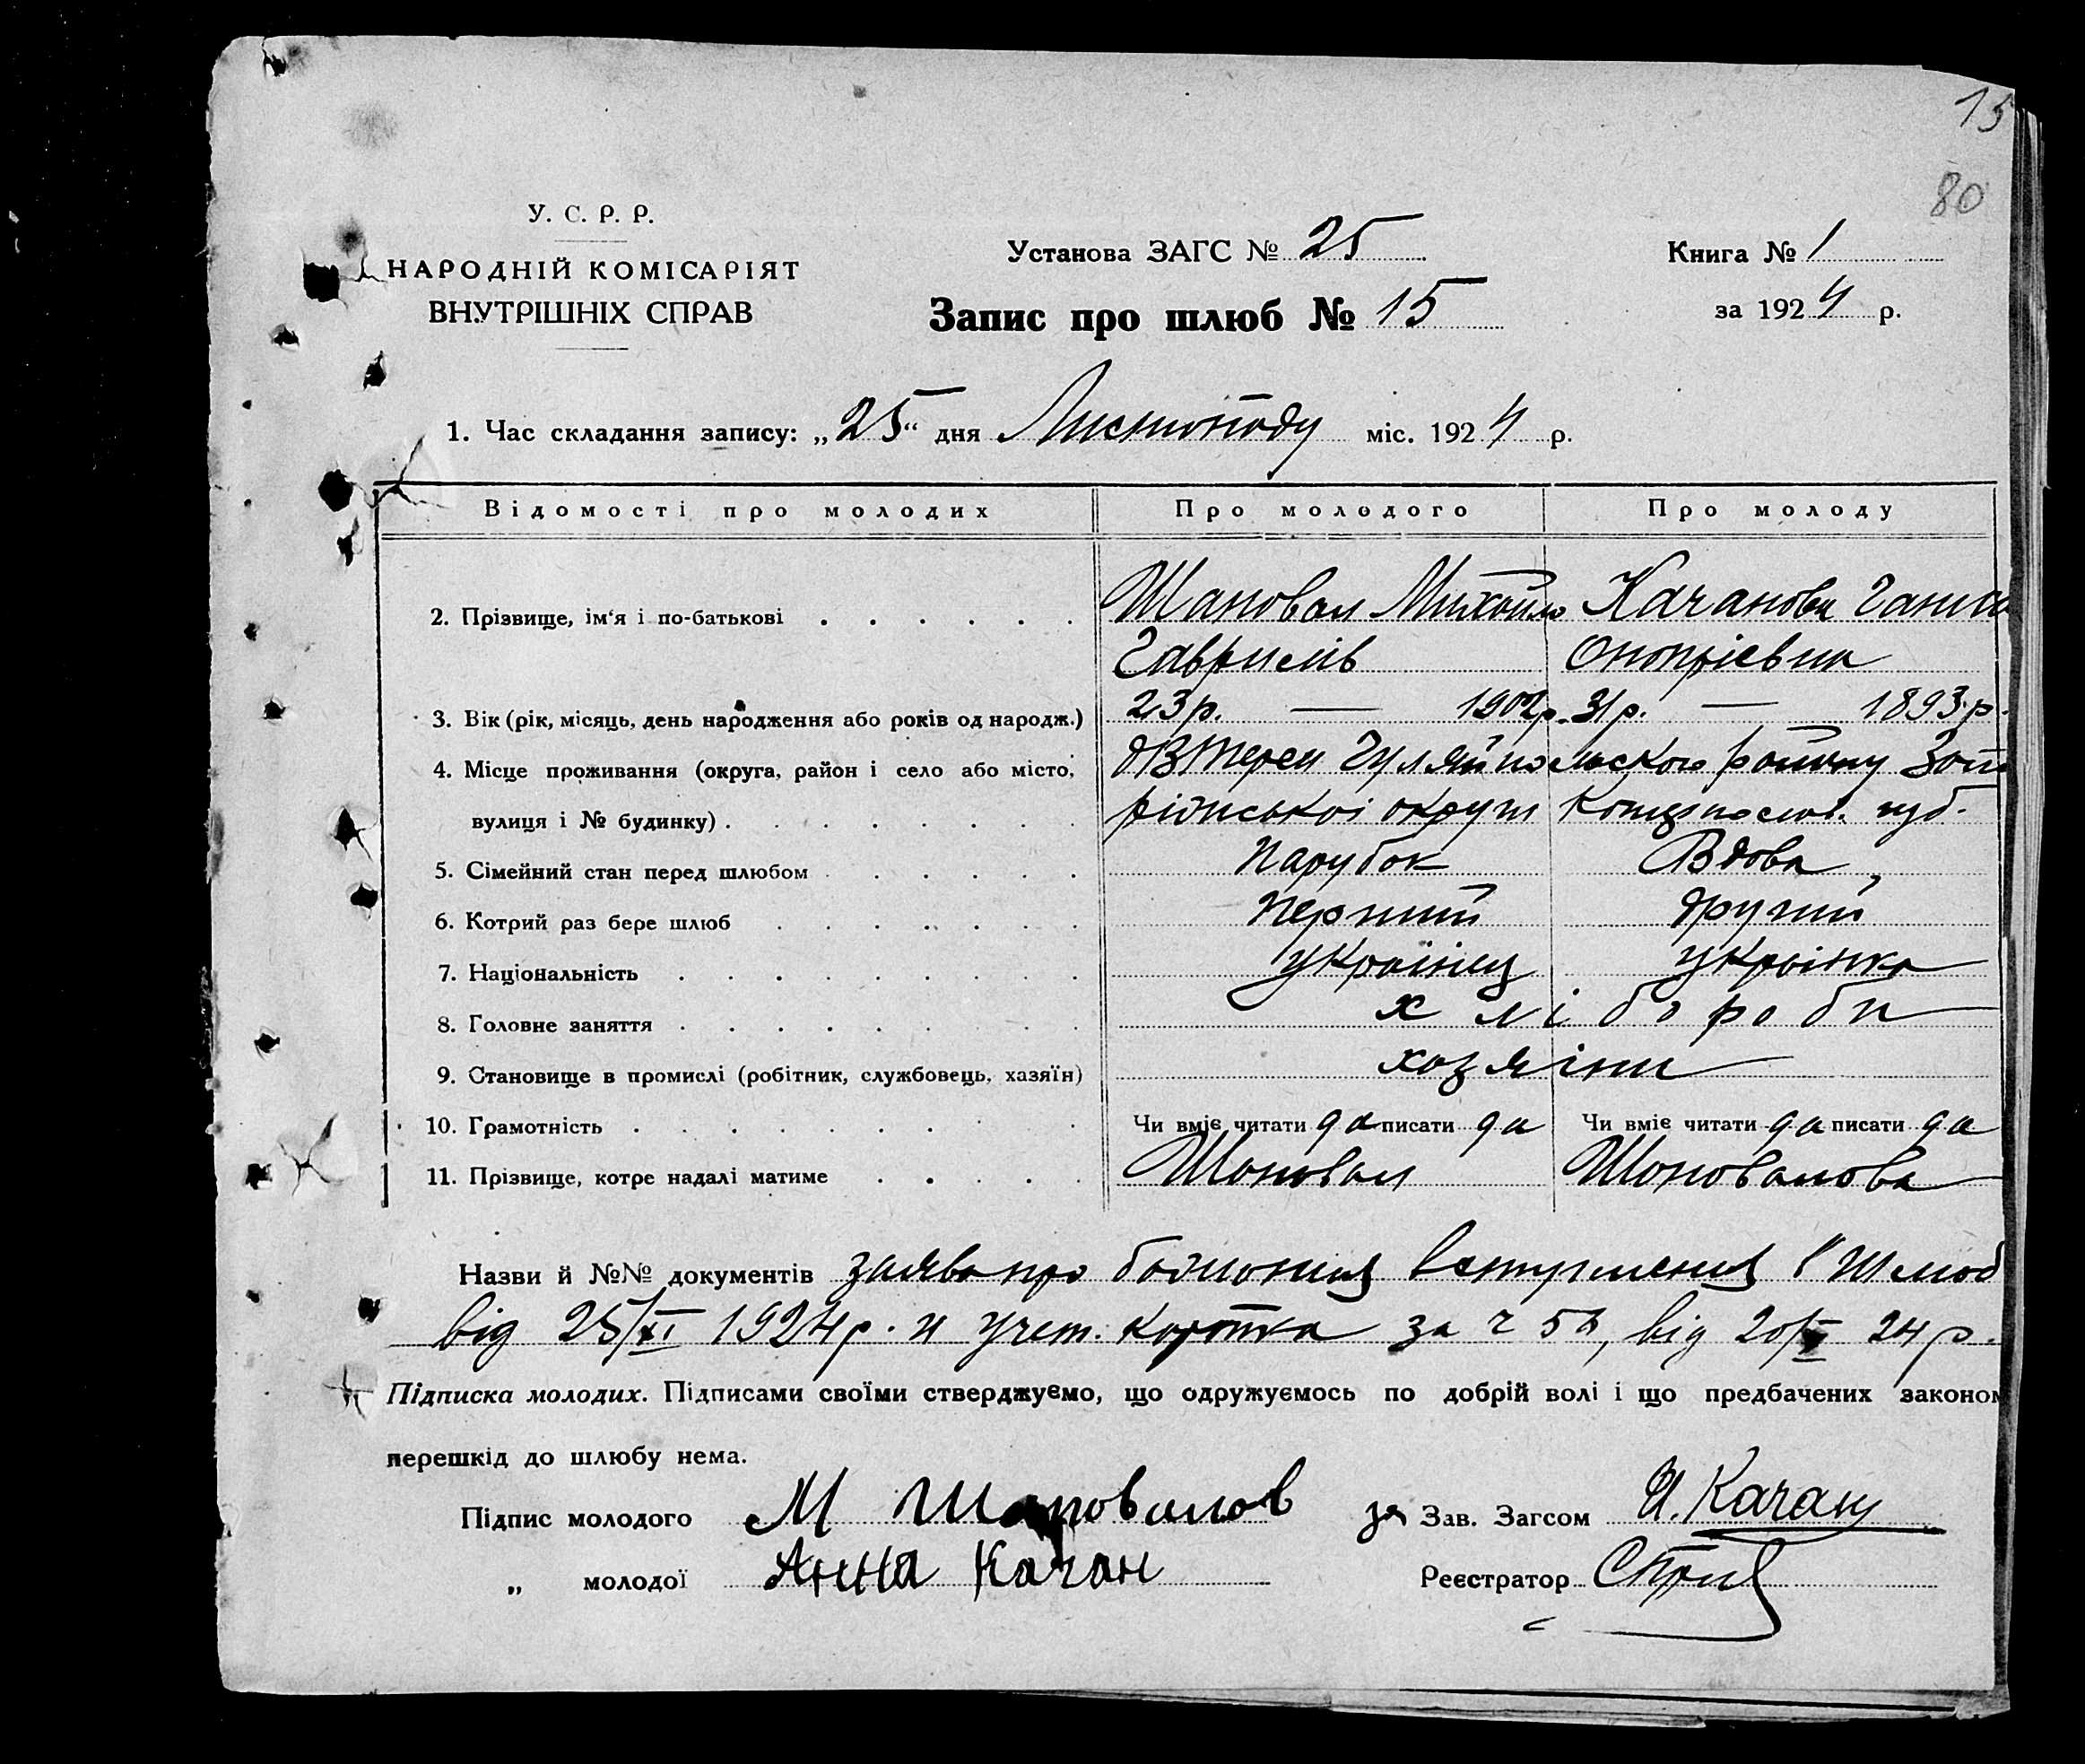 15
80
У. С. Р. Р.
НАРОДНІЙ КОМІСАРІЯТ
ВНУТРІШНІХ СПРАВ
Установа ЗАГС № 25
Книга № 1
Запис про шлюб № 15
за 1924 р.
1. Час складання запису: „25“ дня Листопаду міс. 1924 р.
Відомості про молодих Про молодого Про молоду
2. Прізвище, ім‘я і по-батькові Шаповал Михайло Качанова Ганна
Гаврилів Онопріевна
3. Вік (рік, місяць, день народження або років од народж.) 23 р. — 1902 р. 31 р. — 1893 р.
4. Місце проживання (округа, район і село або місто, Гуляйпольского району Запо
вулиця і № будинку) ріжськоі округи Катеринослав. губ.
5. Сімейний стан перед шлюбом Парубок Вдова
6. Котрий раз бере шлюб Перший другий
7. Національність Українец Українка
8. Головне заняття хлібороби
9. Становище в промислі (робітник, службовець, хазяїн) хозяіни
10. Грамотність Чи вміє читати да писати да Чи вміє читати да писати да
11. Прізвище, котре надалі матиме Шаповал Шаповалова
Назви й №№ документів заява про бажання вступления в шлюб
від 25/XI 1924 р. и учет. картка за ч від 24 р.
Підписка молодих. Підписами своїми стверджуємо, що одружуємось по добрій волі і що предбачених законом
перешкід до шлюбу нема.
Підпис молодого М Шаповалов за Зав. Загсом И. Качан
„ молодої Анна Качан Реєстратор